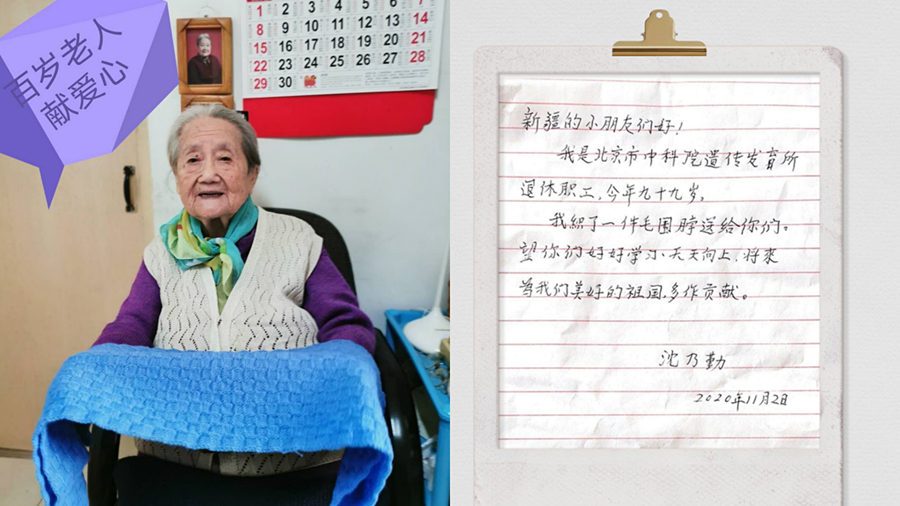 百岁老人
献爱心
1 2 3 4 5 6 7
8 9 10 11 12 13 14
15 16 17 18 19 20 21
22 23 24 25 26 27 28
29 30
新疆的小朋友们好！
我是北京市中科院遗传发育所
退休职工，今年九十九岁。
我织了一件毛围脖送给你们。
望你们好好学习天天向上，将来
为我们美好的祖国多作贡献。
沈乃勤
2020年11月2日